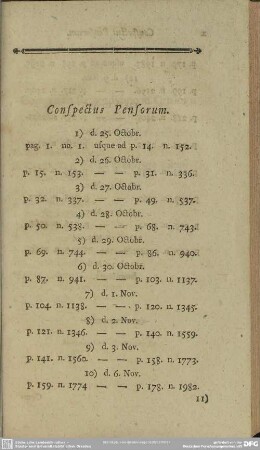 Conſpectus Penſorum.
1) d. 25. Octobr.
pag. 1. no. 1. uſque ad p. 14. n. 152.
2) d. 26. Octobr.
p. 15. n. 153. — — p. 31. n. 336.
3) d. 27. Octobr.
p. 32. n. 337. — — p. 49. n. 537.
4) d. 28. Octobr.
p. 50. n. 538. — — p. 68. n. 743.
5) d. 29. Octobr.
p. 69. n. 744. — — p. 86. n. 940.
6) d. 30. Octobr.
p. 87. n. 941. — — p. 103. n. 1137.
7) d. 1. Nov.
p. 104. n. 1138. — — p. 120. n. 1345.
8) d. 2. Nov.
p. 121. n. 1346. — — p. 140. n. 1559.
9) d. 3. Nov.
p. 141. n. 1560. — — p. 158. n. 1773.
10) d. 6. Nov.
p. 159. n. 1774 — — p. 178. n. 1982.
11)
DFG